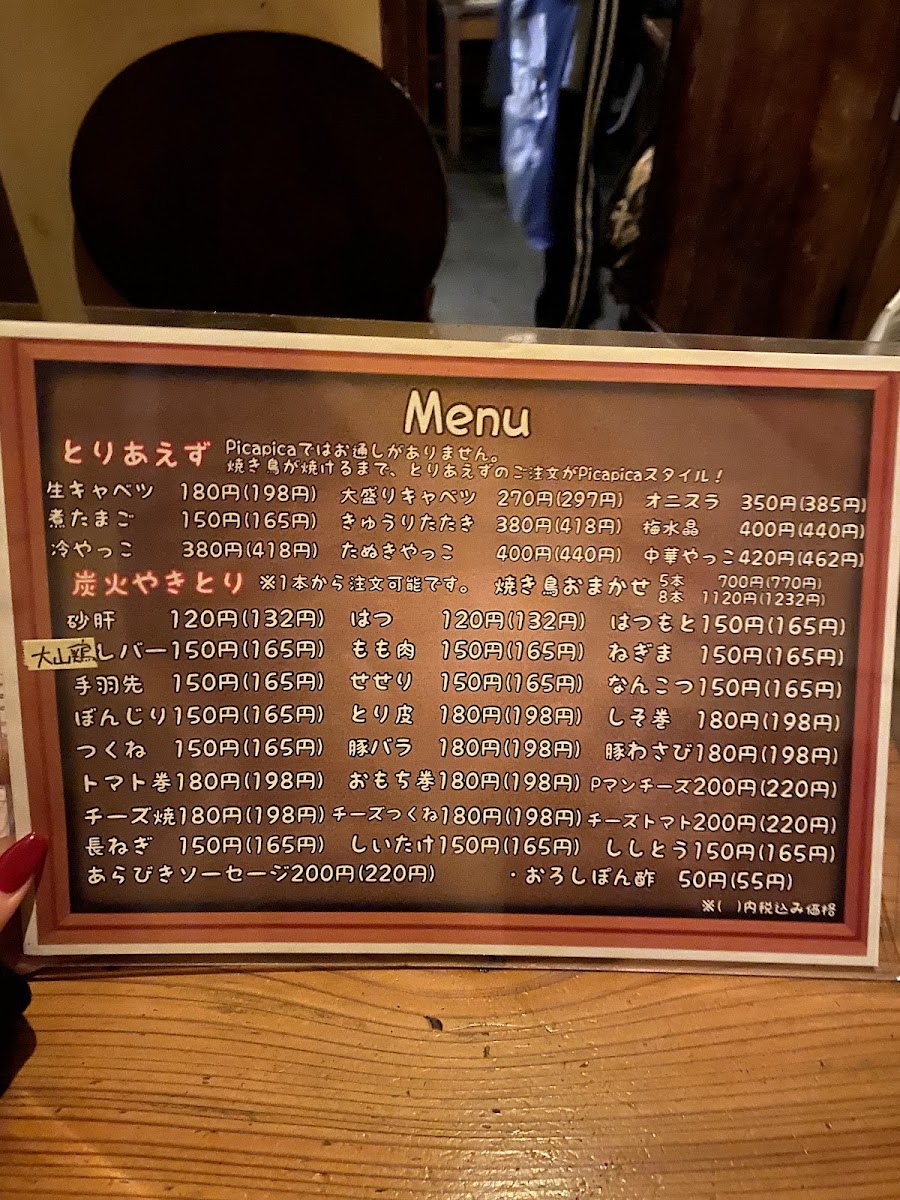 Menu
とりあえず Picapicaではお通しがありません。
焼き鳥が焼けるまで、とりあえずのご注文がPicapicaスタイル！
生キャベツ 180円(198円) 大盛りキャベツ 270円(297円) オニスラ 350円(385円)
煮たまご 150円(165円) きゅうりたたき 380円(418円) 梅水晶 400円(440円)
冷やっこ 380円(418円) たぬきやっこ 400円(440円) 中華やっこ 420円(462円)
炭火やきとり ※1本から注文可能です。 焼き鳥おまかせ 5本 700円(770円)
8本 1120円(1232円)
砂肝 120円(132円) はつ 120円(132円) はつもと 150円(165円)
大山鶏 レバー 150円(165円) もも肉 150円(165円) ねぎま 150円(165円)
手羽先 150円(165円) せせり 150円(165円) なんこつ 150円(165円)
ぼんじり 150円(165円) とり皮 180円(198円) しそ巻 180円(198円)
つくね 150円(165円) 豚バラ 180円(198円) 豚わさび 180円(198円)
トマト巻 180円(198円) おもち巻 180円(198円) Pマンチーズ 200円(220円)
チーズ焼 180円(198円) チーズつくね 180円(198円) チーズトマト 200円(220円)
長ねぎ 150円(165円) しいたけ 150円(165円) ししとう 150円(165円)
あらびきソーセージ 200円(220円) ・おろしぽん酢 50円(55円)
※( )内税込み価格